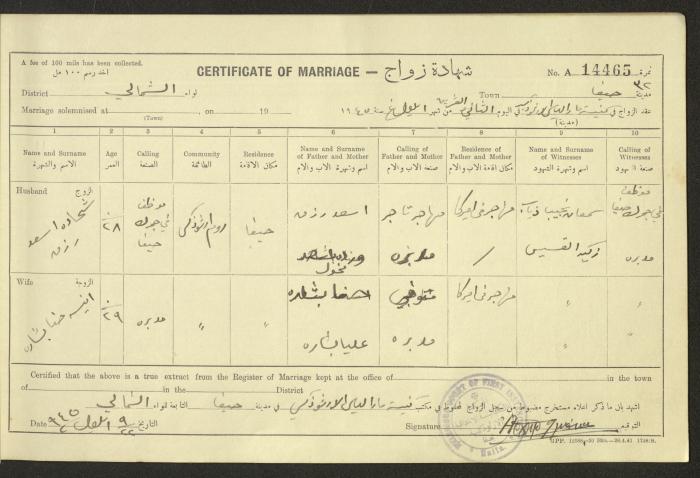 A fee of 100 mils has been collected.
اخذ رسم ١٠٠ مل
CERTIFICATE OF MARRIAGE — شهادة زواج
No. A 14465 نمرة
District لواء الشمالي
Town حيفا مدينة
Marriage solemnised at , on 19
(Town)
عقد الزواج في كنيسة مار الياس في اليوم الثاني من شهر ايلول سنة ١٩٤٥
(مدينة)
1 2 3 4 5 6 7 8 9 10
Name and Surname
الاسم والشهرة
Age
العمر
Calling
الصنعة
Community
الطائفة
Residence
مكان الاقامة
Name and Surname of Father and Mother
اسم وشهرة الاب والام
Calling of Father and Mother
صنعة الاب والام
Residence of Father and Mother
مكان اقامة الاب والام
Name and Surname of Witnesses
اسم وشهرة الشهود
Calling of Witnesses
صنعة الشهود
Husband الزوج
شحاده اسعد رزق
٢٨
موظف في جمرك حيفا
روم ارثوذكس
حيفا
اسعد رزق
تاجر
مهاجر في اميركا
سمعان نجيب دياب
موظف في جمرك حيفا
مدبرة
زكية القسيس
مدبرة
Wife الزوجة
انيسه حنا بشاره
٢٩
مدبره
"
"
حنا بشاره
متوفي
مهاجر في اميركا
"
"
عليا بشاره
مدبره
"
"
Certified that the above is a true extract from the Register of Marriage kept at the office of in the town
of in the District
اشهد بان ما ذكر اعلاه مستخرج مضبوط من سجل الزواج المحفوظ في مكتب كنيسة مار الياس الارثوذكس في مدينة حيفا التابعة للواء الشمالي
Date التاريخ ٢٢/٩ ايلول ٩٤٥
Signature التوقيع